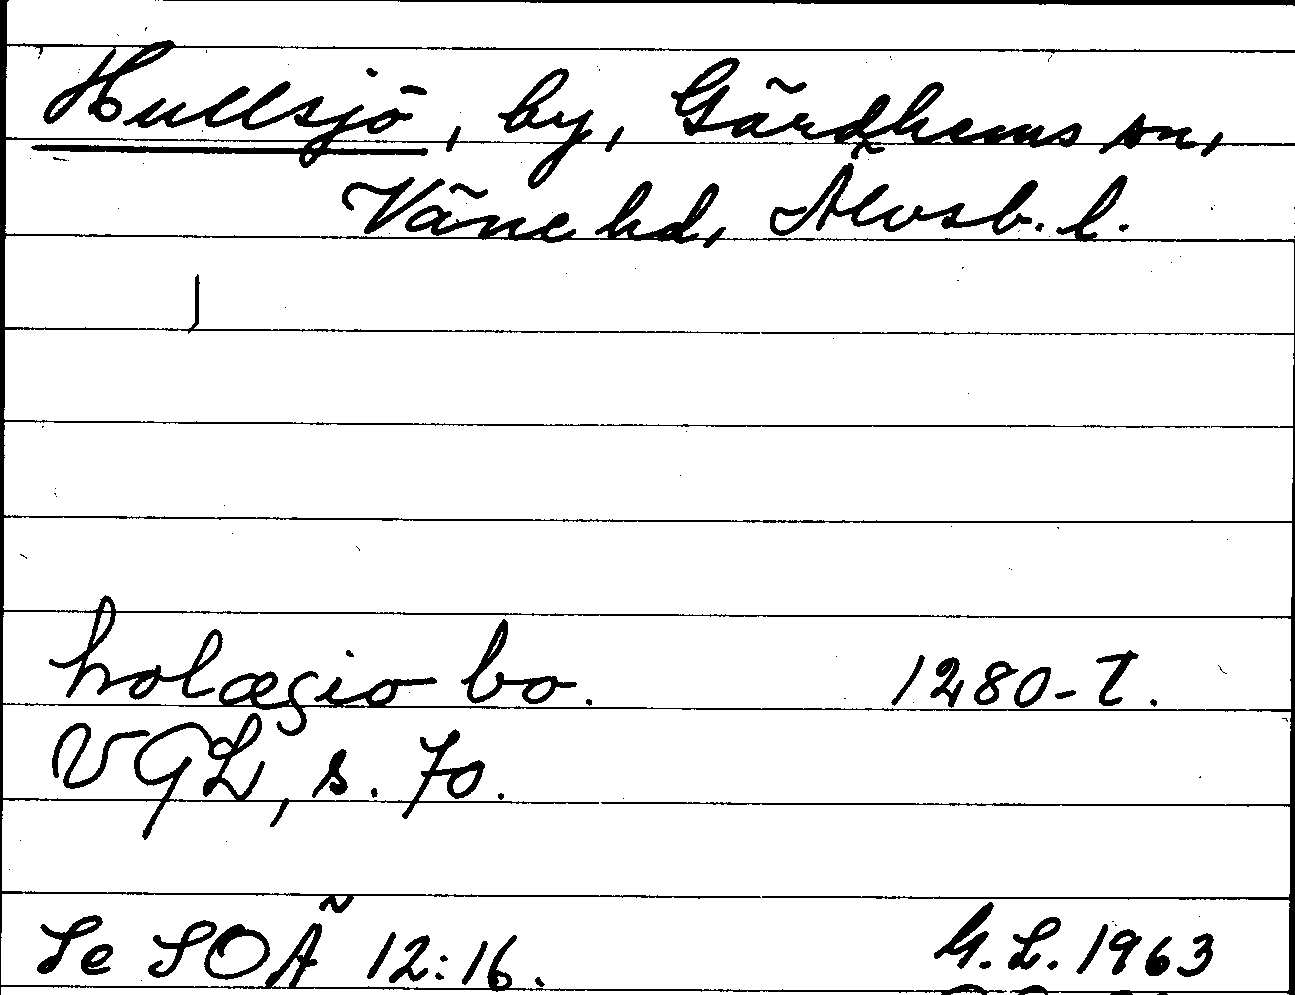 Hullsjö, by, Gärdhems sn,
Väne hd, Älvsb. l.
holægio bo. 1280-t.
VGL, s. 70.
Se SOÄ 12:16. G.L. 1963